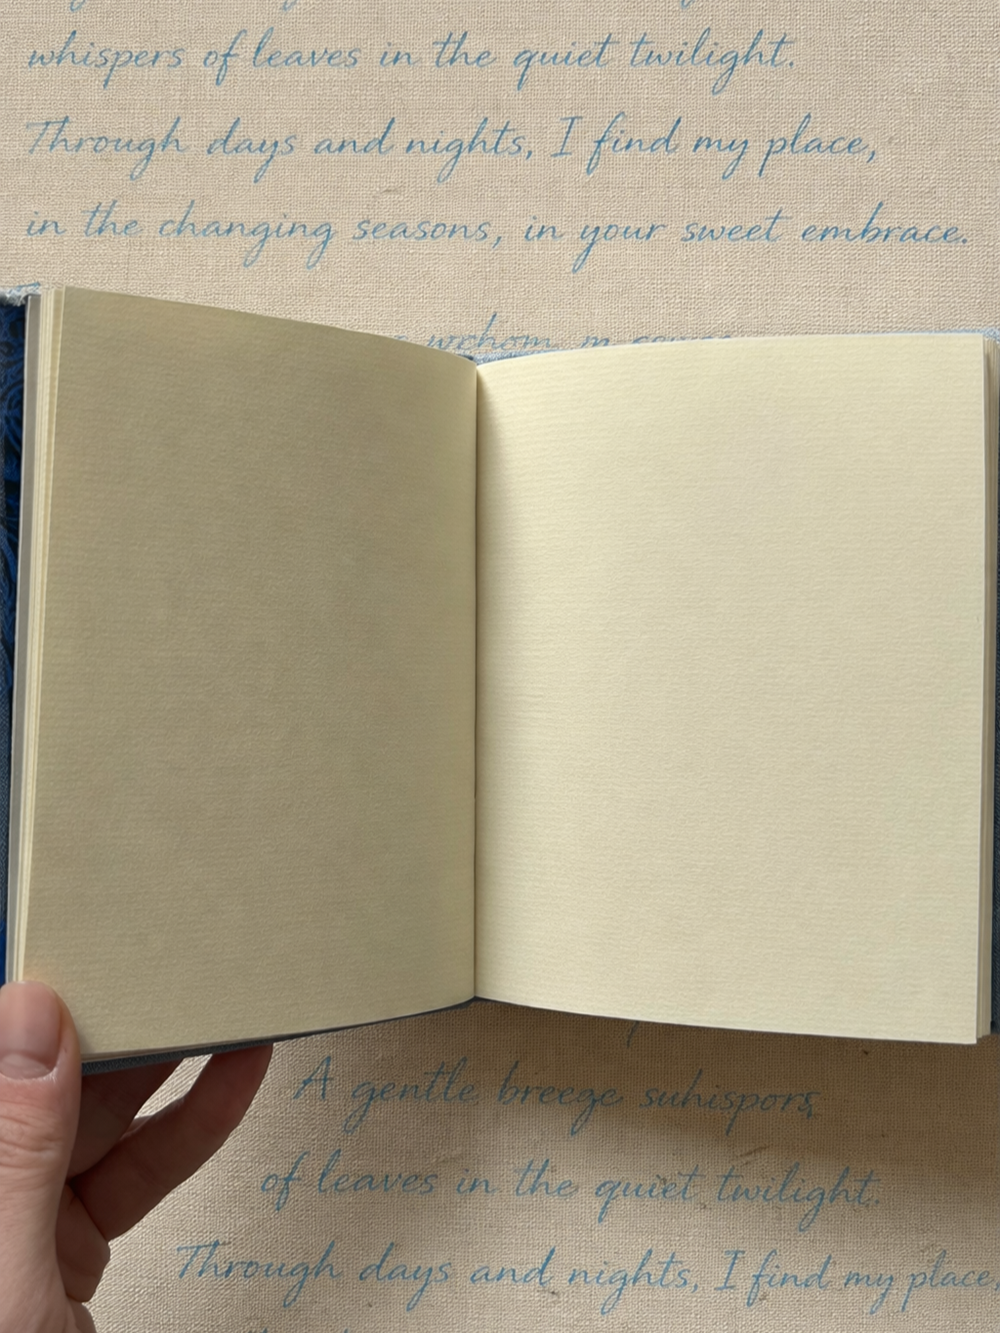 whispers of leaves in the quiet twilight.
Through days and nights, I find my place,
in the changing seasons, in your sweet embrace.
A gentle breege suhispors
of leaves in the quiet twilight.
Through days and nights, I find my place